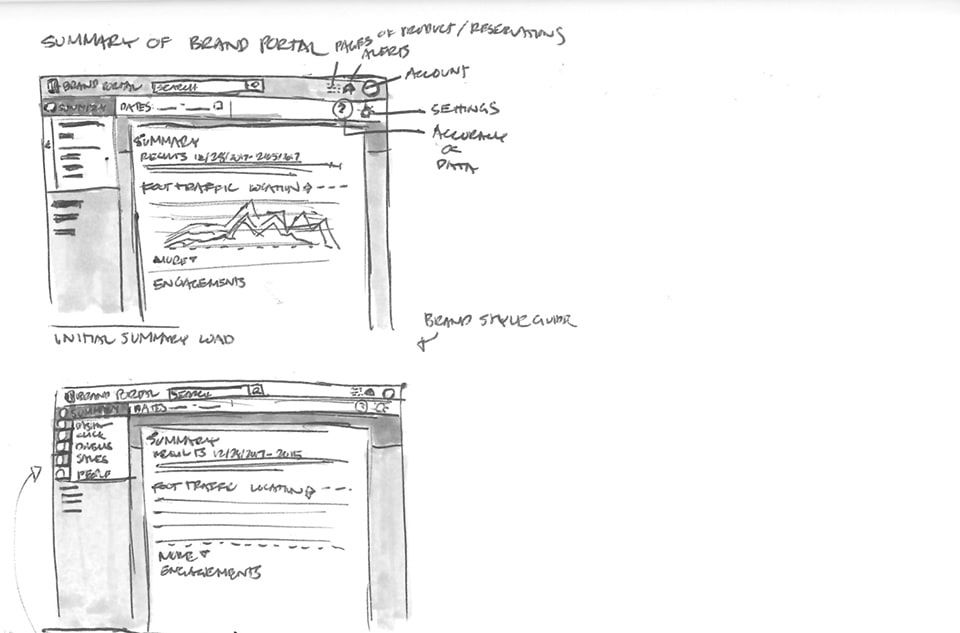 SUMMARY OF BRAND PORTAL
PAGES OF PRODUCT / RESERVATIONS
ALERTS
ACCOUNT
BRAND PORTAL SEARCH
SUMMARY DATES:
?
SETTINGS
ACCURACY
OF
DATA
SUMMARY
RESULTS 12/28/2017-
FOOT TRAFFIC LOCATION
MORE
ENGAGEMENTS
INITIAL SUMMARY LOAD
BRAND STYLE GUIDE
BRAND PORTAL SEARCH
SUMMARY DATES
?
CLICK
SALES
PEOPLE
SUMMARY
RESULTS 12/28/2017-2015
FOOT TRAFFIC LOCATION
MORE
ENGAGEMENTS